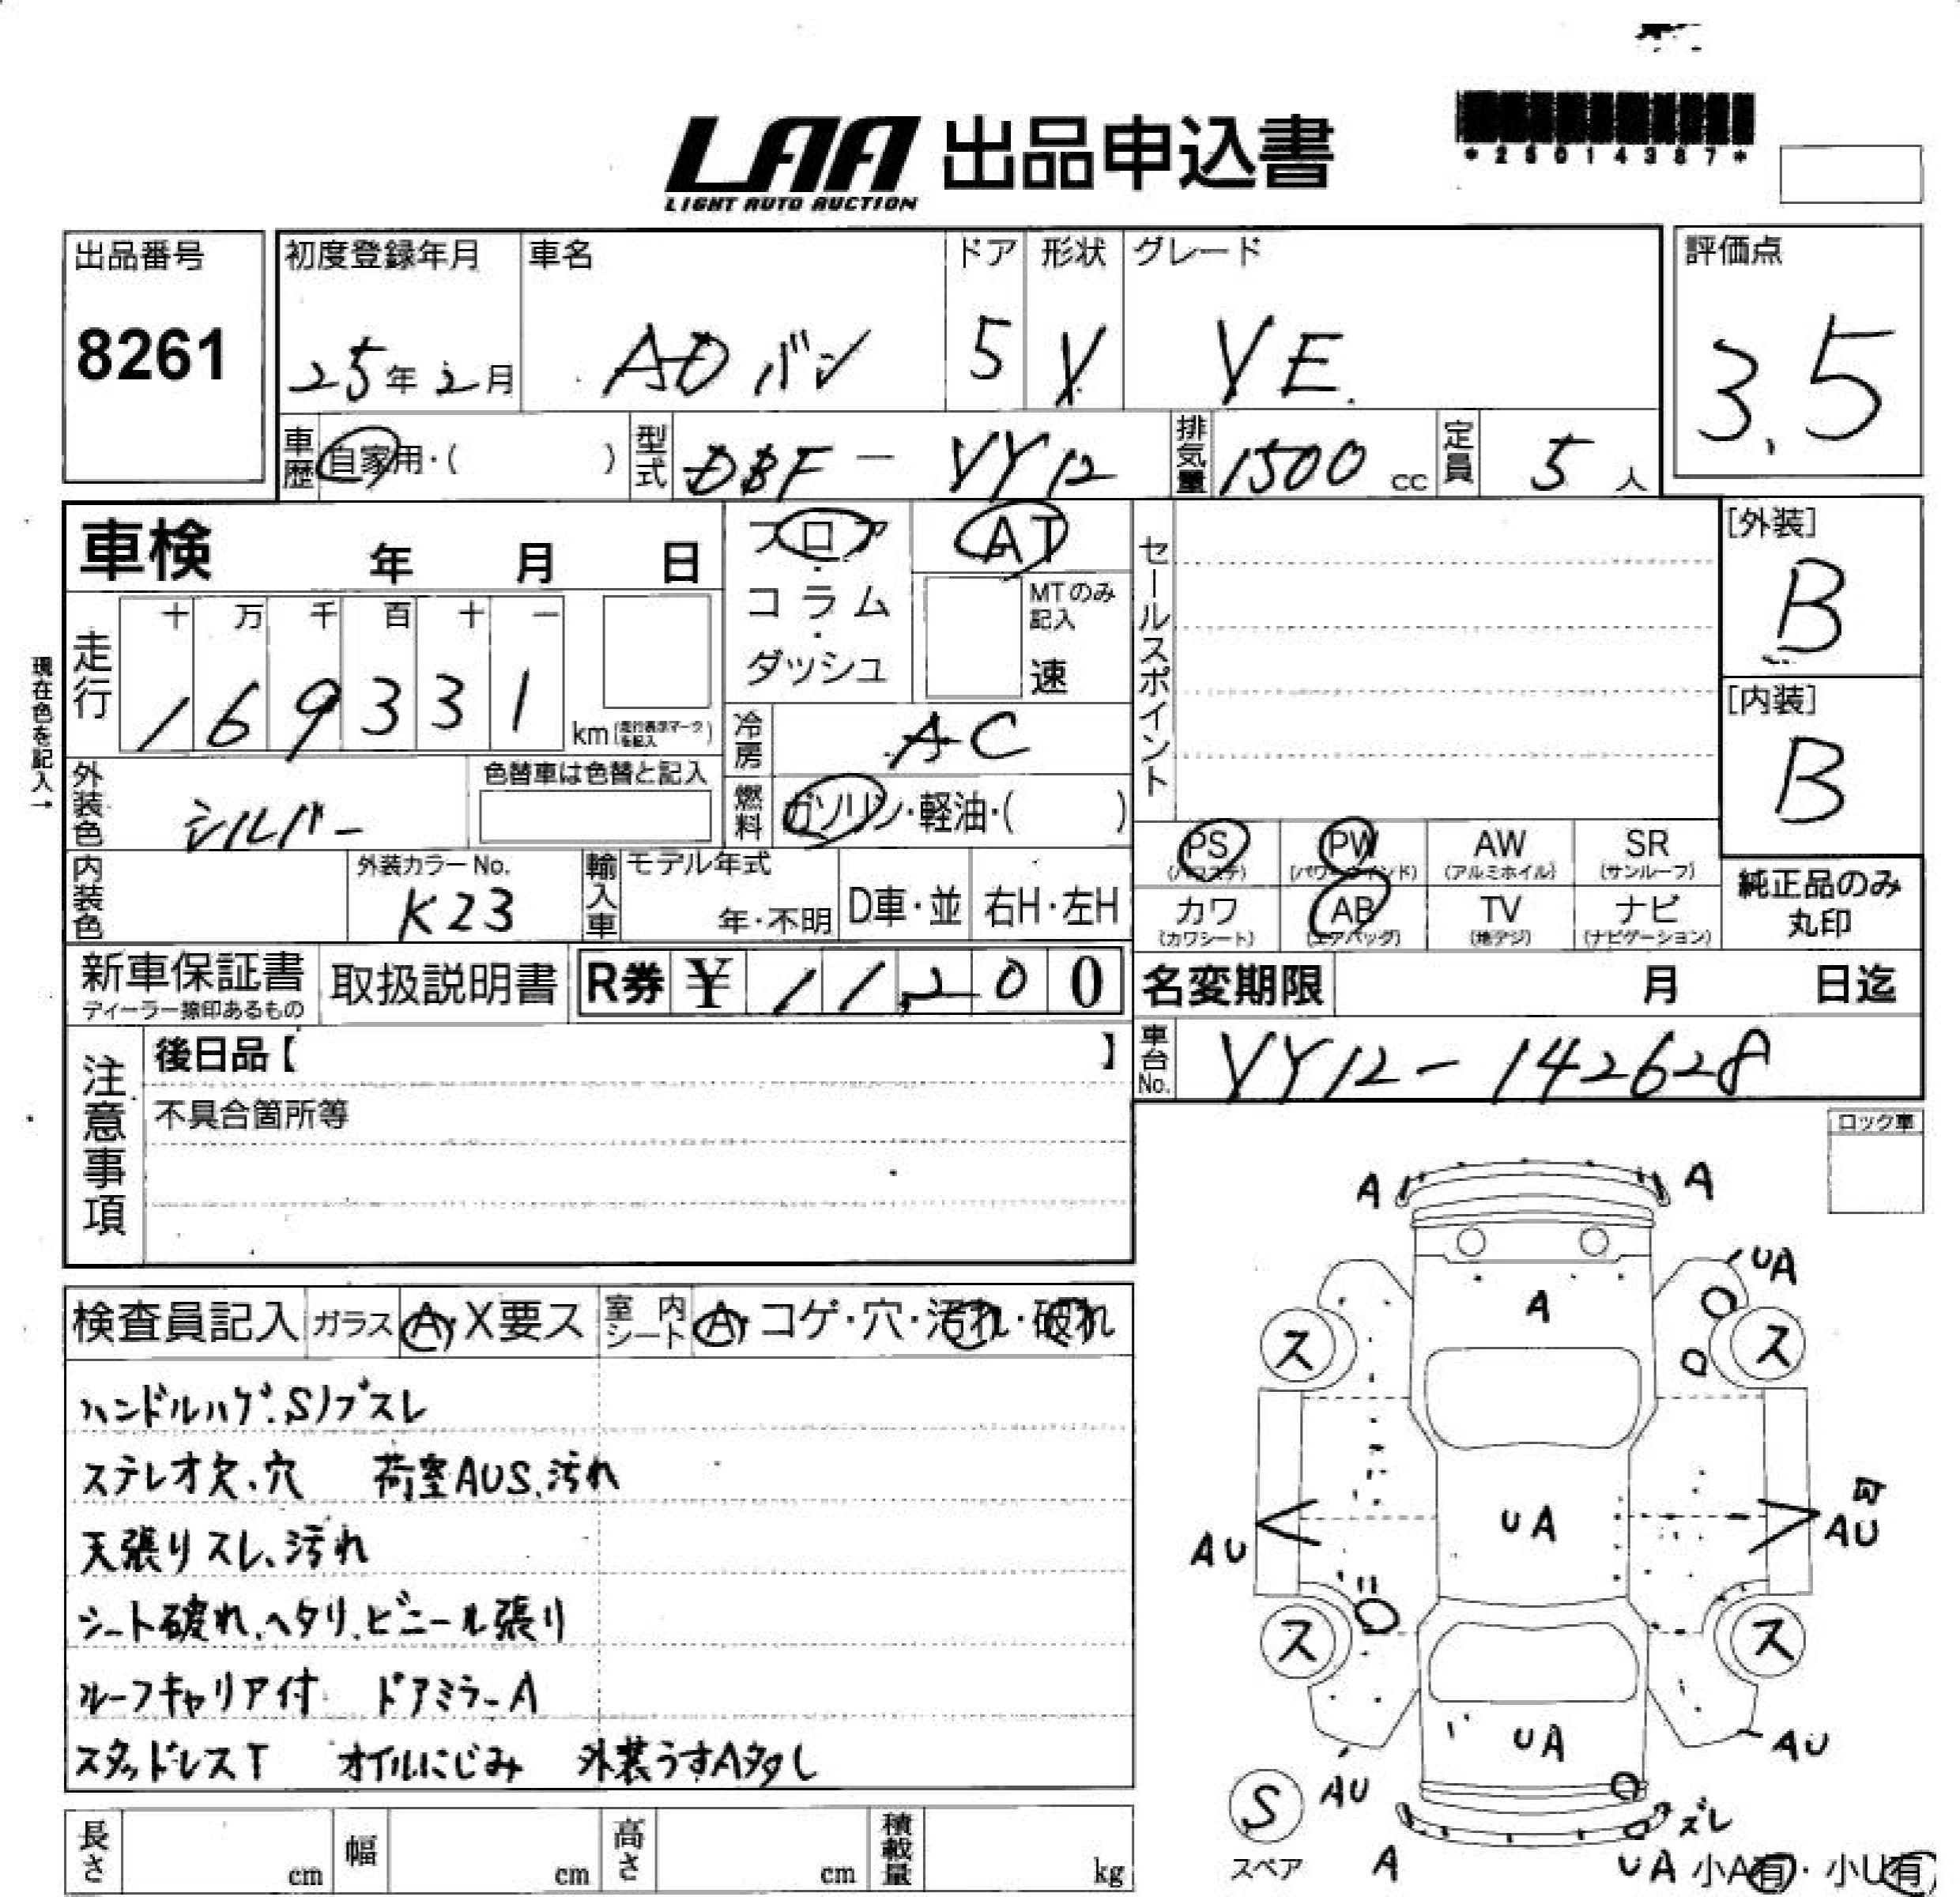 LAA 出品申込書
LIGHT AUTO AUCTION
*25014387*
出品番号
8261
初度登録年月
25年2月
車名
ADバン
ドア
5
形状
V
グレード
VE
評価点
3.5
車歴 自家用・( )
型式 DBF-VY12
排気量 1500 cc
定員 5 人
車検 年 月 日
フロア・コラム・ダッシュ
AT
MTのみ記入
速
セールスポイント
[外装]
B
[内装]
B
現在色を記入→
走行
十 万 千 百 十 一
1 6 9 3 3 1 km (走行表示マークを記入)
冷房 AC
燃料 ガソリン・軽油・( )
外装色 シルバー
色替車は色替と記入
内装色
外装カラーNo.
K23
輸入車 モデル年式
年・不明
D車・並
右H・左H
PS (パワステ)
PW (パワーウィンド)
AW (アルミホイル)
SR (サンルーフ)
カワ (カワシート)
AB (エアバッグ)
TV (地デジ)
ナビ (ナビゲーション)
純正品のみ
丸印
新車保証書
ディーラー捺印あるもの
取扱説明書
R券 ¥ 11,200
名変期限 月 日迄
車台No. VY12-142628
注意事項
後日品【 】
不具合箇所等
ロック車
検査員記入 ガラス A・X要ス 室内シート A・コゲ・穴・汚れ・破れ
ハンドルハゲ、Sノブスレ
ステレオ欠、穴 荷室AUS、汚れ
天張りスレ、汚れ
シート破れ、ヘタリ、ビニール張り
ルーフキャリア付 ドアミラーA
スタッドレスT オイルにじみ 外装うすA多し
A A
UA
A
ス ス
UA
AU AU
ス ス
UA
AU AU
S
スペア
A
ズレ
UA 小A有・小U有
長さ cm
幅 cm
高さ cm
積載量 kg